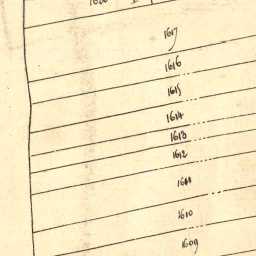 1617
1616
1615
1614
1613
1612
1611
1610
1609